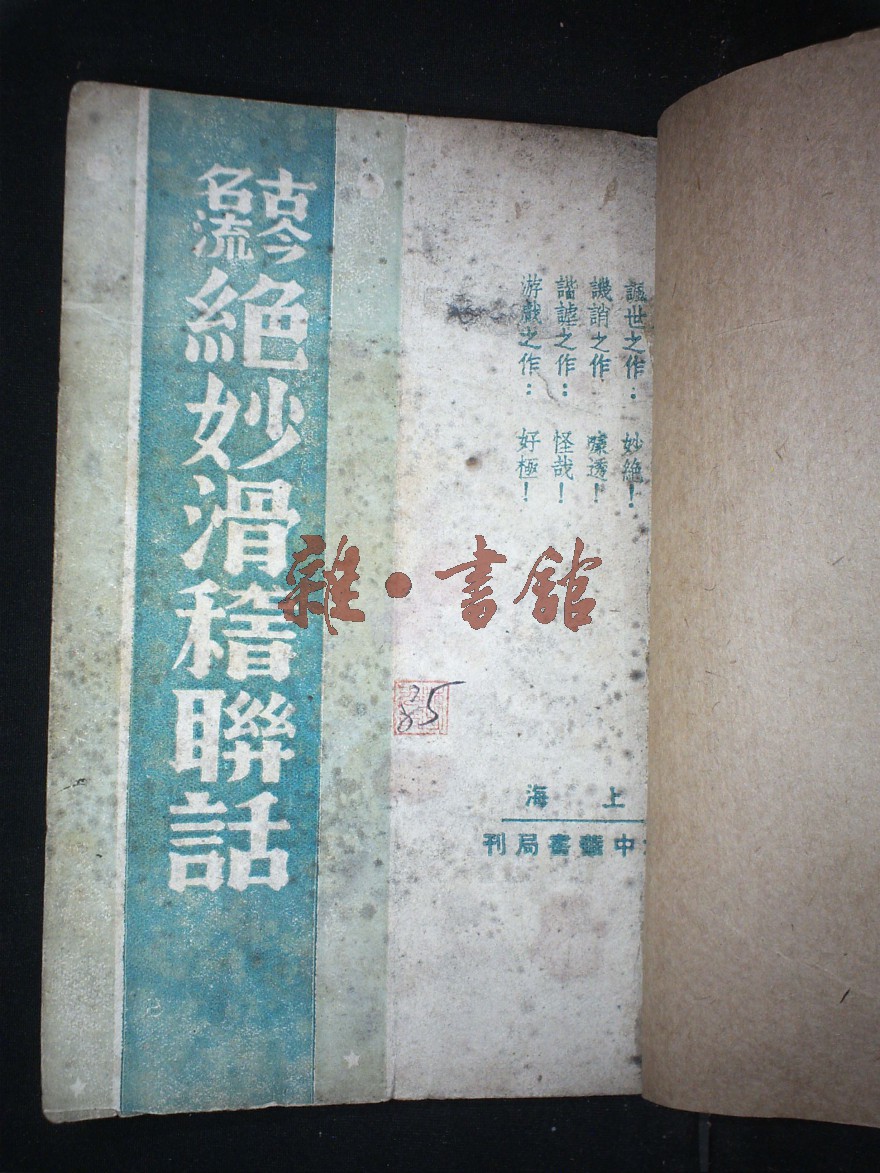 古今
名流
絕妙滑稽聯話
諷世之作：妙絕！
譏誚之作 噱透！
諧謔之作：怪哉！
游戲之作：好極！
雜·書館
35
上海
中醫書局刊